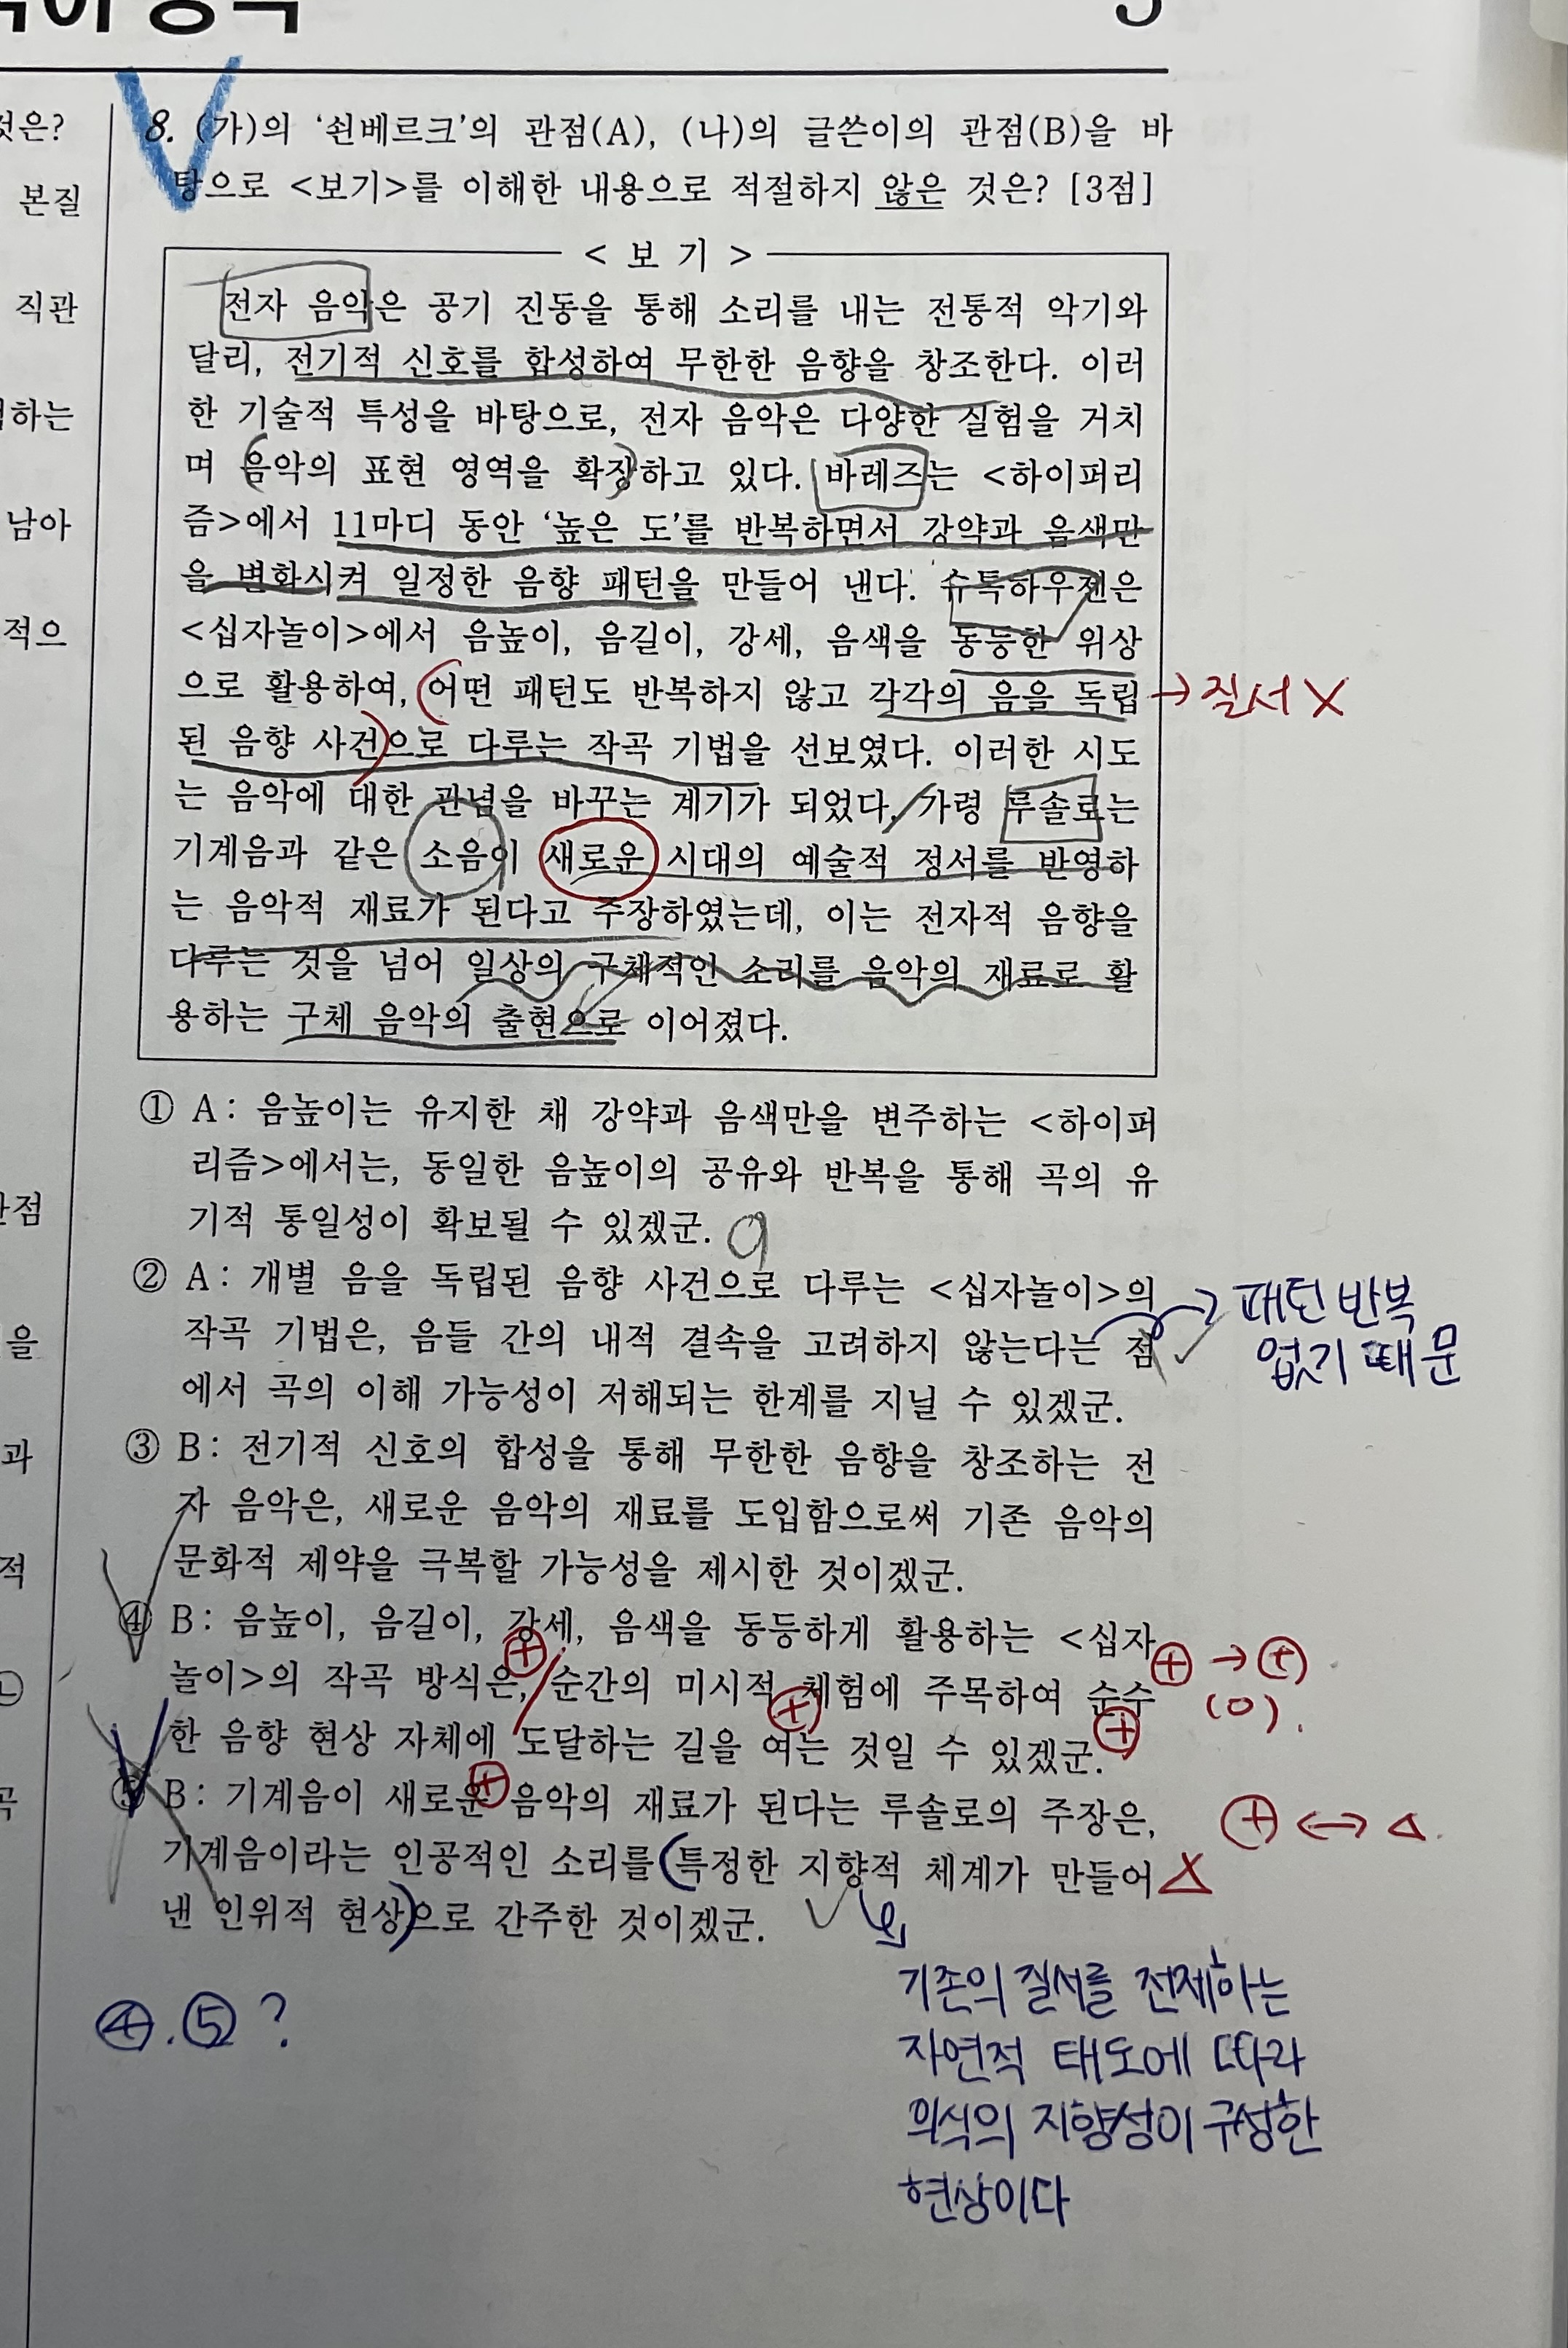 8. (가)의 ‘쇤베르크’의 관점(A), (나)의 글쓴이의 관점(B)을 바
탕으로 <보기>를 이해한 내용으로 적절하지 않은 것은? [3점]
< 보 기 >
전자 음악은 공기 진동을 통해 소리를 내는 전통적 악기와
달리, 전기적 신호를 합성하여 무한한 음향을 창조한다. 이러
한 기술적 특성을 바탕으로, 전자 음악은 다양한 실험을 거치
며 음악의 표현 영역을 확장하고 있다. 바레즈는 <하이퍼리
즘>에서 11마디 동안 ‘높은 도’를 반복하면서 강약과 음색만
을 변화시켜 일정한 음향 패턴을 만들어 낸다. 슈톡하우젠은
<십자놀이>에서 음높이, 음길이, 강세, 음색을 동등한 위상
으로 활용하여, 어떤 패턴도 반복하지 않고 각각의 음을 독립 → 질서 X
된 음향 사건으로 다루는 작곡 기법을 선보였다. 이러한 시도
는 음악에 대한 관념을 바꾸는 계기가 되었다. 가령 루솔로는
기계음과 같은 소음이 새로운 시대의 예술적 정서를 반영하
는 음악적 재료가 된다고 주장하였는데, 이는 전자적 음향을
다루는 것을 넘어 일상의 구체적인 소리를 음악의 재료로 활
용하는 구체 음악의 출현으로 이어졌다.
① A: 음높이는 유지한 채 강약과 음색만을 변주하는 <하이퍼
리즘>에서는, 동일한 음높이의 공유와 반복을 통해 곡의 유
기적 통일성이 확보될 수 있겠군.
② A: 개별 음을 독립된 음향 사건으로 다루는 <십자놀이>의
작곡 기법은, 음들 간의 내적 결속을 고려하지 않는다는 점
에서 곡의 이해 가능성이 저해되는 한계를 지닐 수 있겠군.
패턴 반복
없기 때문
③ B: 전기적 신호의 합성을 통해 무한한 음향을 창조하는 전
자 음악은, 새로운 음악의 재료를 도입함으로써 기존 음악의
문화적 제약을 극복할 가능성을 제시한 것이겠군.
④ B: 음높이, 음길이, 강세, 음색을 동등하게 활용하는 <십자
놀이>의 작곡 방식은, 순간의 미시적 체험에 주목하여 순수
한 음향 현상 자체에 도달하는 길을 여는 것일 수 있겠군.
⊕ → ⊕
(O).
⑤ B: 기계음이 새로운 음악의 재료가 된다는 루솔로의 주장은,
기계음이라는 인공적인 소리를 특정한 지향적 체계가 만들어
낸 인위적 현상으로 간주한 것이겠군.
⊕ ↔ △.
기존의 질서를 전제하는
자연적 태도에 따라
의식의 지향성이 구성한
현상이다
④.⑤ ?
것은?
본질
직관
하는
남아
적으
관점
을
과
적
㉡
곡